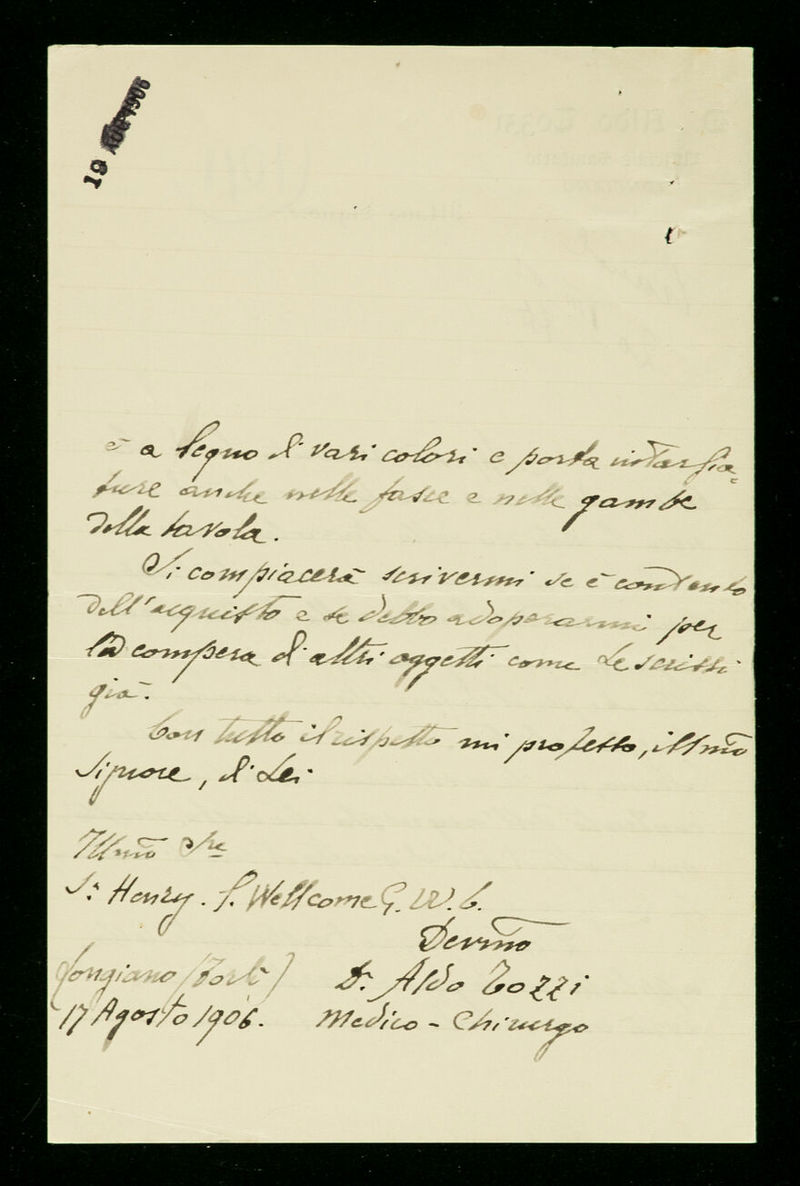 19 AUG 1906
è a legno di vari colori e porta intarsia-
ture anche nelle fasce e nelle gambe
della tavola.
Si compiacerà scrivermi se è contento
dell'acquisto e se debbo adoperarmi per
la compera di altri oggetti come Le scrissi
già.
Con tutto il rispetto mi professo, illmo
Signore, di Lei
Illmo Sre
Sr. Henry. S. Wellcome G. W. C.
Devmo
Longiano (Forlì) Dr. Aldo Tozzi
17 Agosto 1906. Medico - Chirurgo